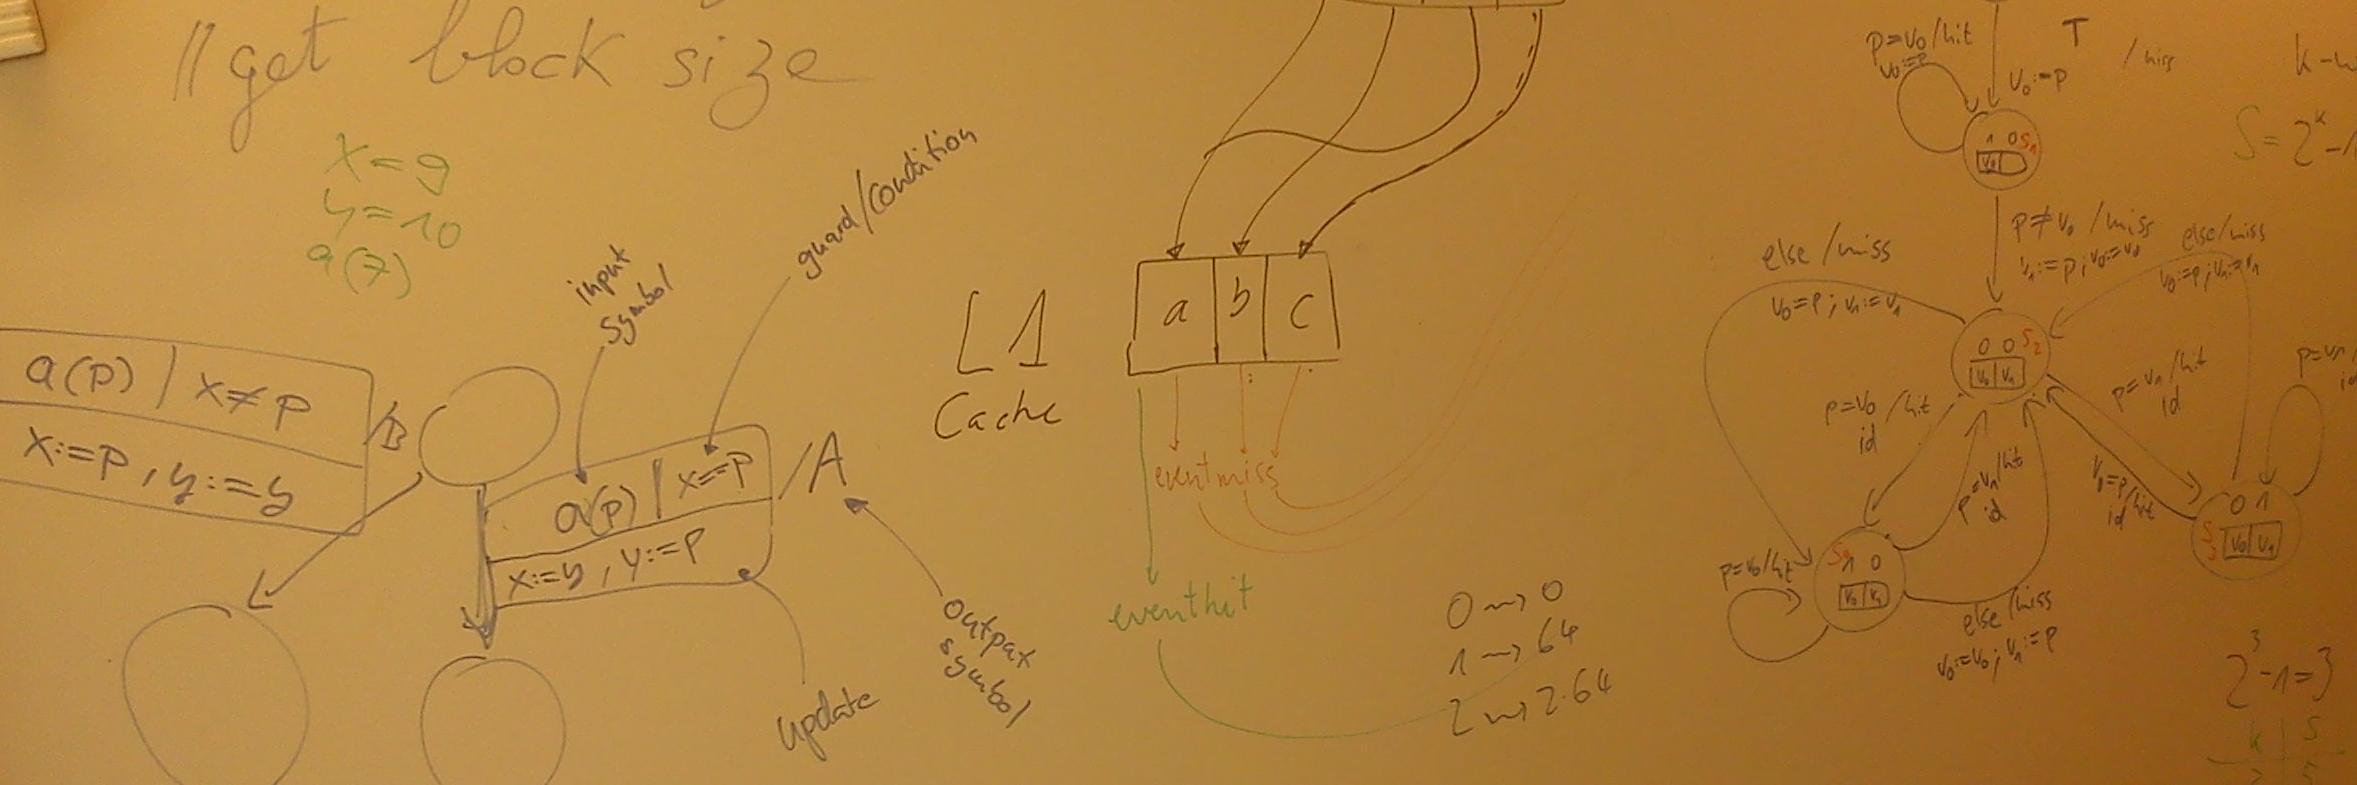 // get block size
x=9
y=10
a(7)
input
symbol
guard/condition
a(p) | x≠p
x:=p, y:=y
/B
a(p) | x==p
x:=y, y:=p
/A
update
output
symbol
L1
Cache
a b c
event miss
event hit
0 ⇝ 0
1 ⇝ 64
2 ⇝ 2·64
T
p=v₀/hit
v₀:=p
v₀:=p
/miss
S=2ᵏ-1
1 0 S₁
v₀
p≠v₀/miss
v₁:=p; v₀:=v₀
else/miss
v₀:=p; v₁:=v₁
else/miss
v₀=p; v₁:=v₁
0 0 S₂
v₀ v₁
p=v₀/hit
id
p=v₁/hit
id
p=v₁/hit
id
v₀=p/hit
id
p=v₁
id
0 1
S₃ v₀ v₁
1 0
v₀ v₁
p=v₀/hit
else/miss
v₀:=v₀; v₁:=p
2³-1=3
k | S